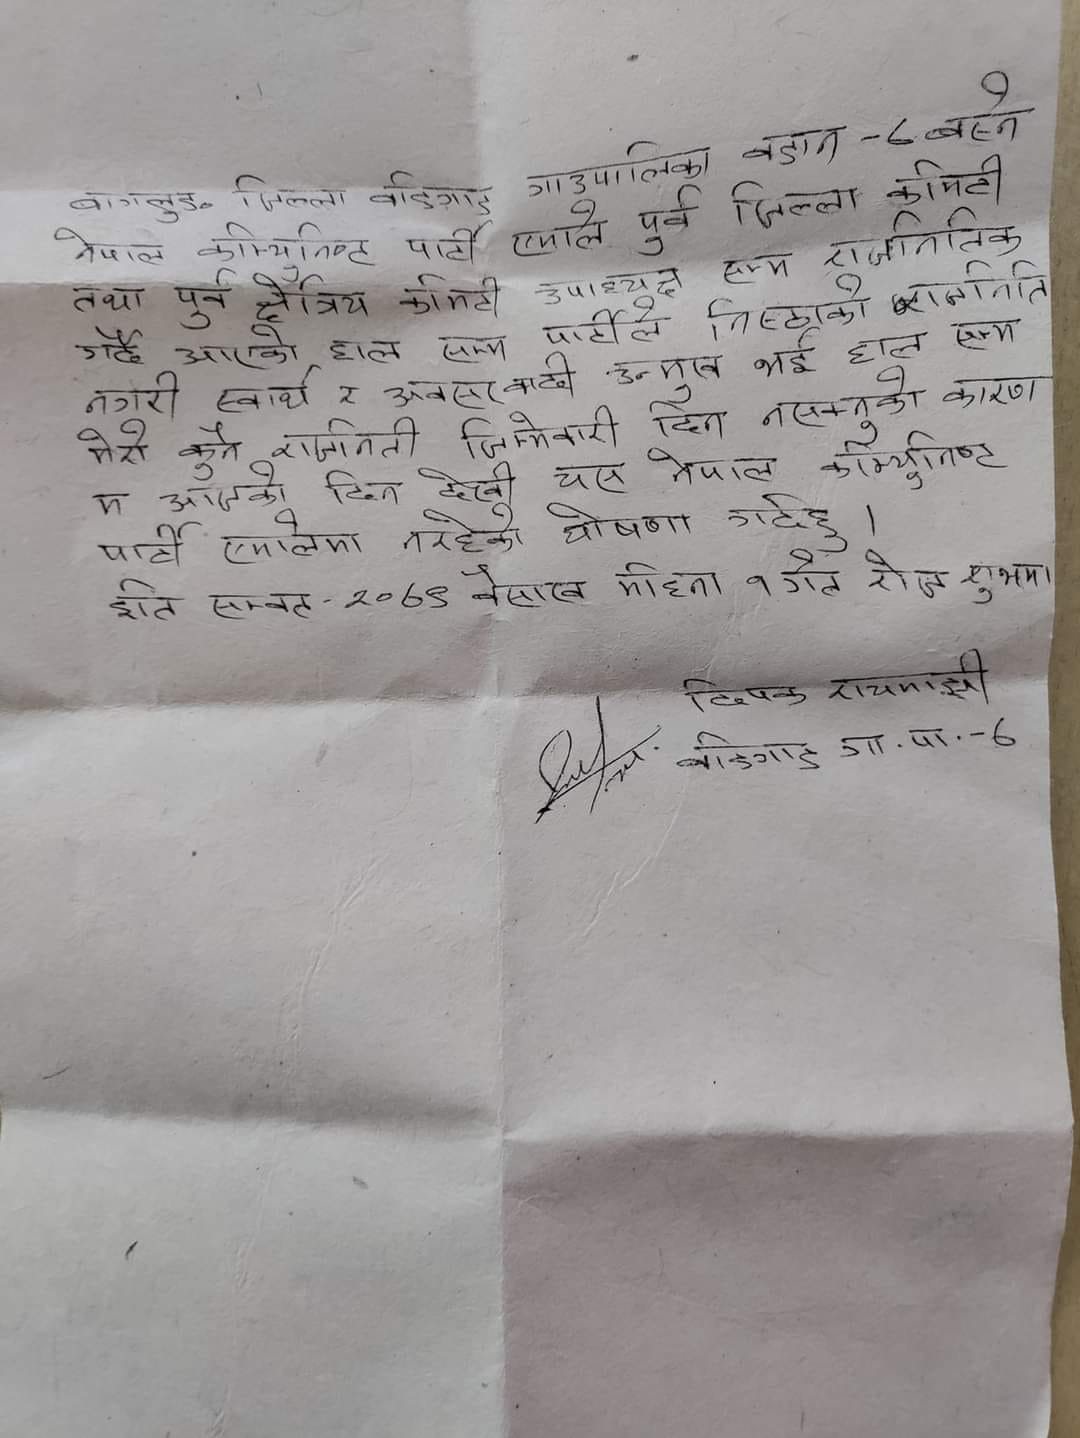 बागलुङ जिल्ला वडिगाड गाउपालिका वडान -६ बस्ने
नेपाल कम्युनिष्ट पार्टी एमाले पुर्व जिल्ला कमिटी
तथा पुर्व क्षेत्रिय कमिटी उपाध्यक्ष सम्म राजनितिक
गर्दै आएको हाल सम्म पार्टीले निस्ठाको राजनिति
नगरी स्वार्थ र अवसरवादी उन्मुख भई हाल सम्म
मेरो कुनै राजनिती जिम्मेवारी दिन नसक्नुको कारण
म आजको दिन देखी यस नेपाल कम्युनिष्ट
पार्टी एमालेमा नरहेको घोषणा गर्दछु ।
इति सम्वत - २०७९ वैसाख महिना १ गते रोज शुभम।
दिपक रायमाझी
वडिगाड गा.पा.-६